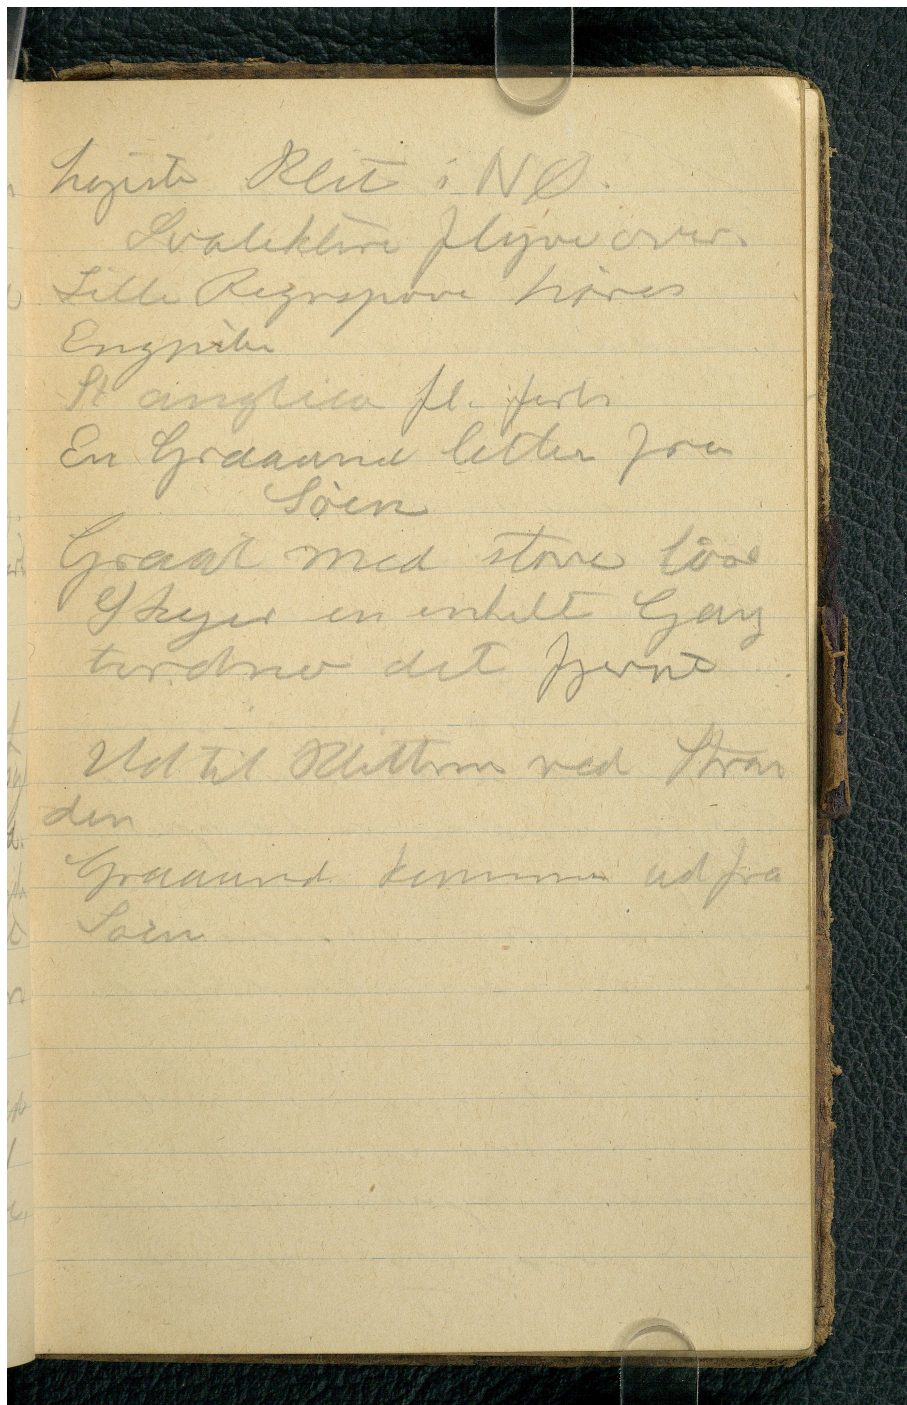 højeste Klit i NØ.
Svaleklire flyve over.
Lille Regnspove høres
Engpiber
St anglica fl. forbi
En Graaand letter fra
Søen
Graat med store løse
Skyer en enkelt Gang
tordner det fjernt
Ud til Klitterne ved Stran
den
Graaand kommer ud fra
Søen